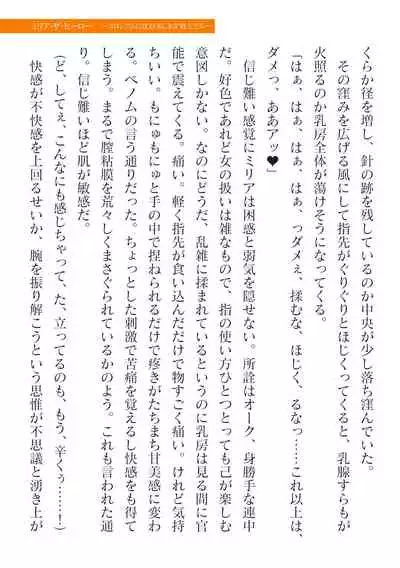 ミリア・ザ・ヒーロー
くらか径を増し、針の跡を残しているのか中央が少し落ち窪んでいた。
その窪みを広げる風にして指先がぐりぐりとほじくってくると、乳腺すらもが
火照るのか乳房全体が蕩けそうになってくる。
「はぁ、はぁ、はぁ、はぁ、っダメぇ、揉むな、ほじく、るなっ……これ以上は、
ダメっ、ああアっ♥」
信じ難い感覚にミリアは困惑と弱気を隠せない。所詮はオーク、身勝手な連中
だ。好色であれど女の扱いは雑なもので、指の使い方ひとつとっても己が楽しむ
意図しかない。なのにどうだ、乱雑に揉まれているというのに乳房は見る間に官
能で震えてくる。痛い。軽く指先が食い込んだだけで物すごく痛い。けれど気持
ちいい。もにゅもにゅと手の中で捏ねられるだけで疼きがたちまち甘美感に変わ
る。ベノムの言う通りだった。ちょっとした刺激で苦痛を覚えるし快感をも得て
しまう。まるで膣粘膜を荒々しくまさぐられているかのよう。これも言われた通
り。信じ難いほど肌が敏感だ。
（ど、してぇ、こんなにも感じちゃって、た、立ってるのも、もう、辛くぅ……！）
快感が不快感を上回るせいか、腕を振り解こうという思惟が不思議と湧き上が